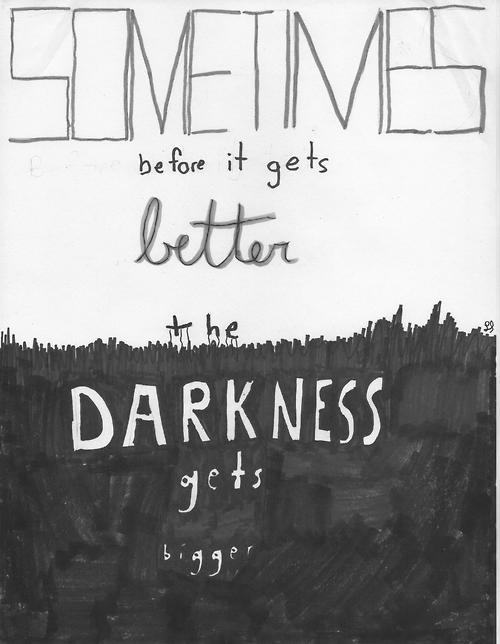 SOMETIMES
before it gets
better
the
DARKNESS
gets
bigger